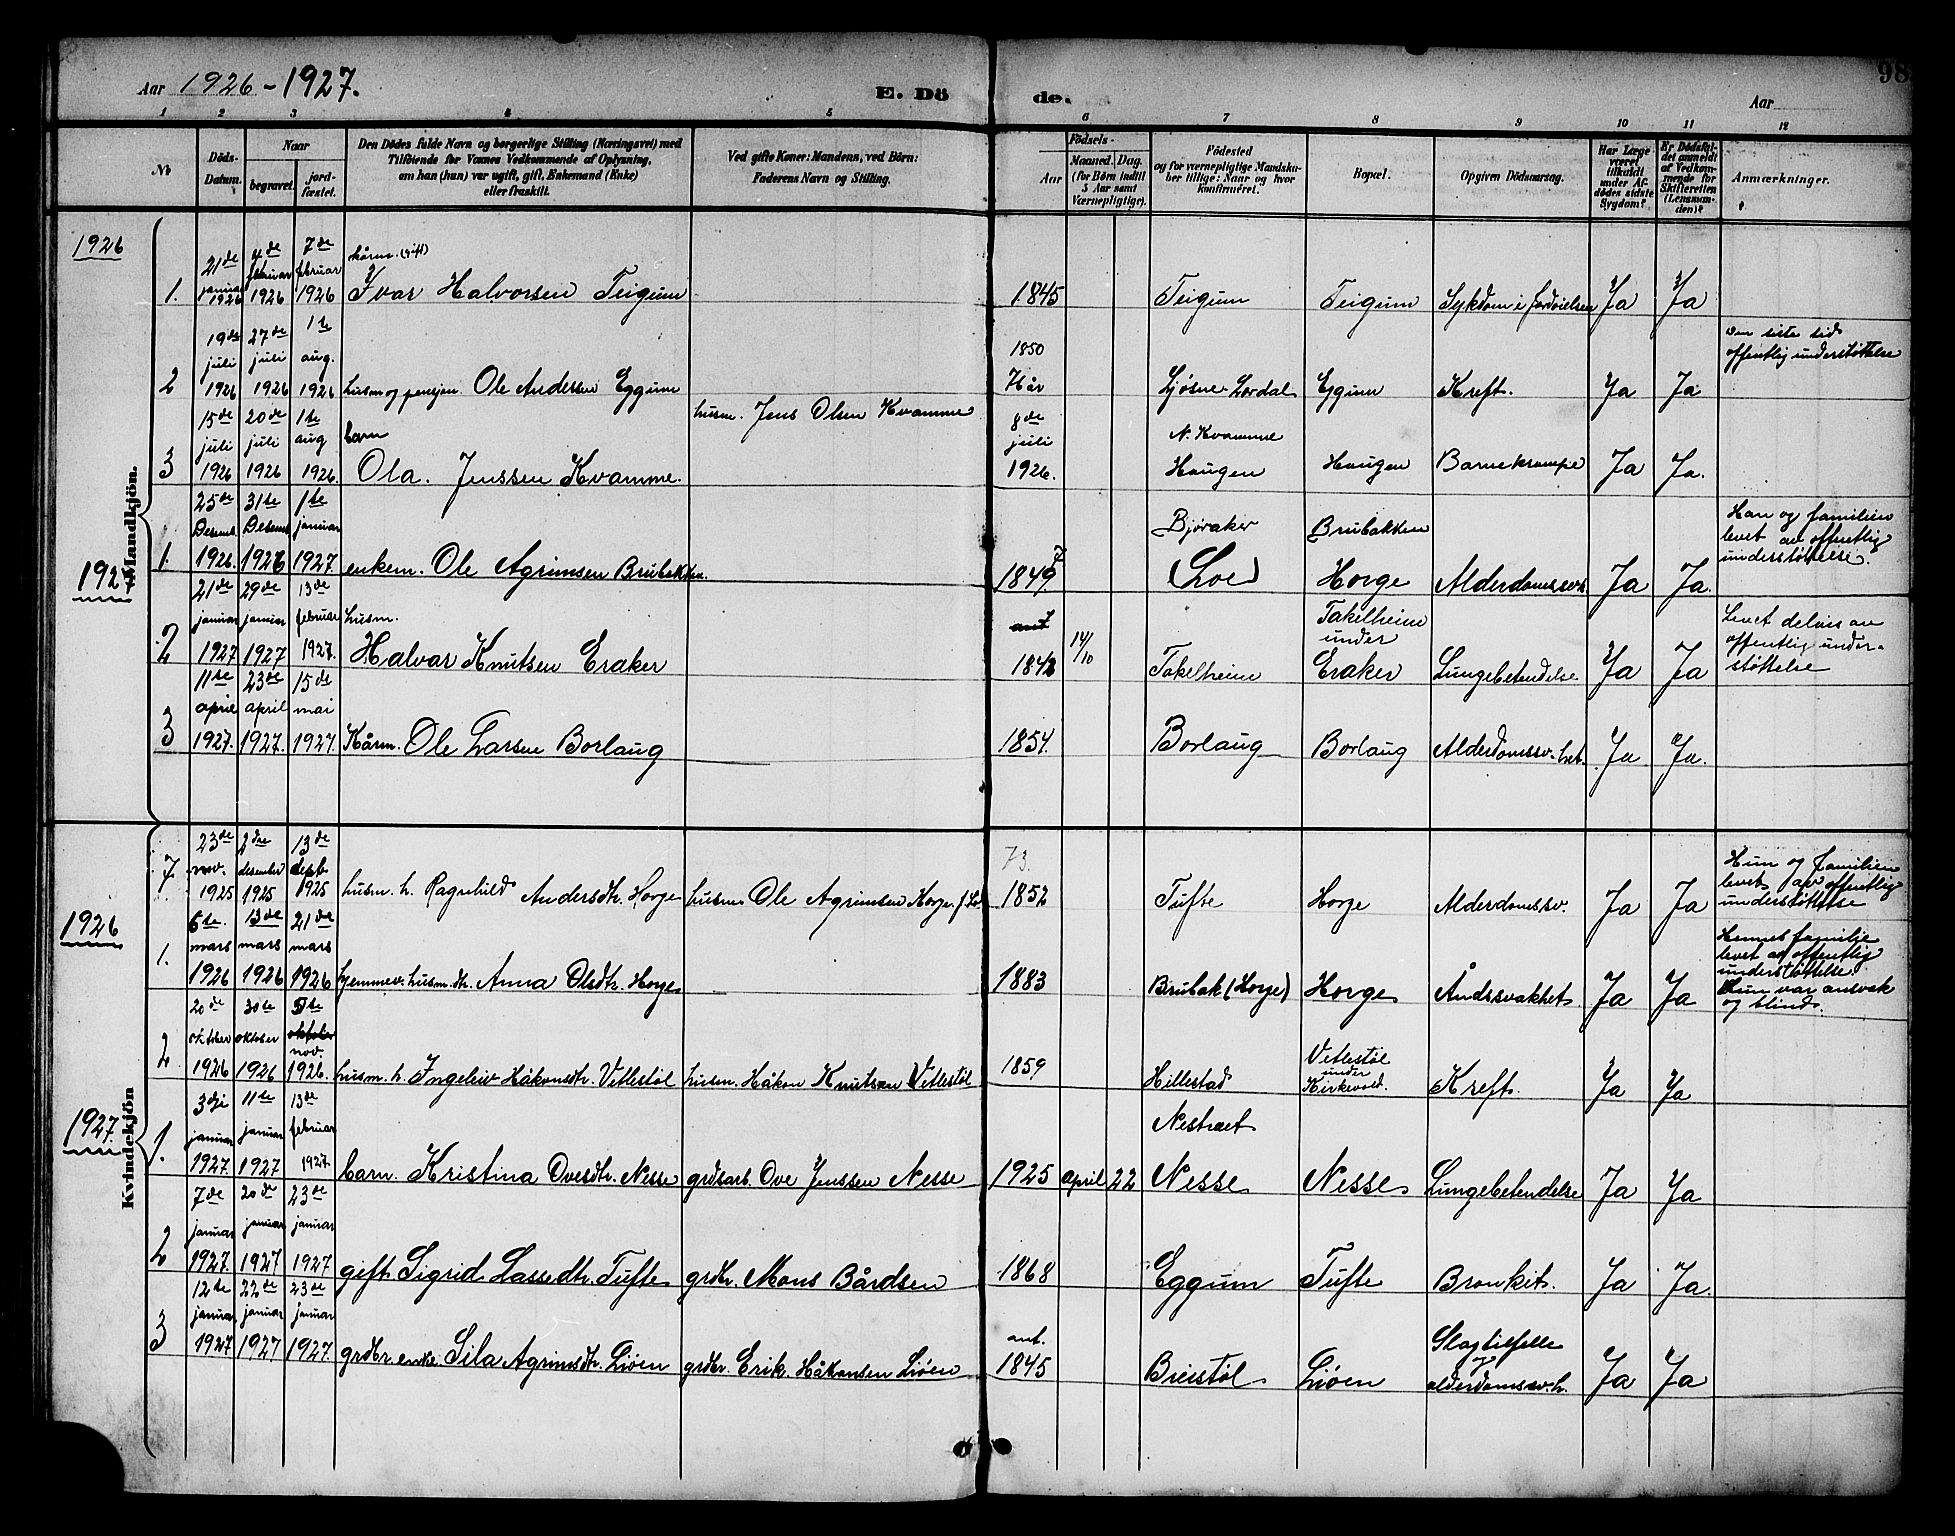 98
Aar 1926-1927.
E. Dö de.
Aar
1 2 3 4 5 6 7 8 9 10 11 12
No
Döds-Datum.
Naar
begravet.
jordfæstet.
Den Dödes fulde Navn og borgerlige Stilling (Næringsvei) med
Tilföiende for Voxnes Vedkommende af Oplysning,
om han (hun) var ugift, gift, Enkemand (Enke)
eller fraskilt.
Ved gifte Koner: Mandens, ved Börn:
Faderens Navn og Stilling.
Födsels-
Aar
Maaned. Dag.
(for Börn indtil
5 Aar samt
Værnepligtige).
Födested
og for værnepligtige Mandskaber tillige: Naar og hvor
konfirmeret.
Bopæl.
Opgiven Dödsaarsag.
Har Læge
været
tilkaldt
under Afdödes sidste
Sygdom?
Er Dödsfaldet anmeldt
af Vedkommende for
Skifteretten
(Lensmanden)?
Anmærkninger.
Mandkjön.
1926
1. 21de januar 1926 4de februar 1926 7de februar 1926 kårm. (gift) Ivar Halvorsen Teigum 1845 Teigum Teigum Sykdom i fordøielsen Ja Ja
2 19de juli 1926 27de juli 1926 1ste aug. 1926 husm og pensjon. Ole Andersen Eggum 1850 Ljøsne Lærdal Eggum Kreft. Ja Ja Den siste tid offentlig understøttelse
3 15de juli 1926 20de juli 1926 1ste aug 1926. barn Ola. Jenssen Kvamme. husm. Jens Olsen Kvamme 8de juli 1926. N. Kvamme Haugen Haugen Barnekrampe Ja Ja.
1927
1. 25de Desemb 1926. 31te Desemb 1926 1ste januar 1927. enkem. Ole Agrimsen Brubakken. 1849 Bjøraker (Loe) Brubakken Horge Alderdomssvh. Ja Ja. Han og familien levet av offentlig understøttelse.
2 21de januar 1927 29de januar 1927 13de februar 1927. husm. Halvar Knutsen Eraker 1842 14/10 Takelheim Takelheim under Eraker Lungebetendelse Ja Ja Levet delvis av offentlig understøttelse
3 11te april 1927. 23de april 1927. 15de mai 1927. Kårm. Ole Larsen Borlaug 1854. Borlaug Borlaug Alderdomssv.het. Ja Ja.
Kvindekjön
7. 23de nov. 1925 2den desember 1925 13de 1925 husm. h. Ragnhild Andersdtr. Horge husm Ole Agrimsen Horge 73. 1852 Tufte Horge Alderdomssv. Ja Ja Hun og familien levet av offentlig understøttelse
1926
1. 6te mars 1926 13de mars 1926 21de mars 1926 hjemmev. husm. dtr. Anna Olsdtr. Horge 1883 Brubak (Horge) Horge Åndssvakhet. Ja Ja Hennes familje levet av offentlig understøttelse. Hun var åndsvak og blind.
2 20de oktober 1926 30te oktober 1926 oktober nov. 1926. husm. h. Ingeleiv Håkonsdtr. Vetlestøl husm. Håkon Knutsen Vetlestøl 1859 Hillestad Vetlestøl under Kirkevold. Kreft. Ja Ja
1927.
1. 3dje januar 1927. 11te januar 1927 13de februar 1927. barn. Kristina Ovesdtr. Nesse grdsarb. Ove Jenssen Nesse 1925 april 22 Nestræt Nesse Nesse Lungebetendelse Ja Ja
2 7de januar 1927. 20de januar 1927 23de januar 1927 gift Sigrid Lassedtr. Tufte grdbr. Mons Bårdsen 1868 Eggum Tufte Bronkit. Ja Ja.
3 12te januar 1927 22de januar 1927 23de januar 1927. grdbr. enke. Sila Agrimsdtr. Liøen grdbr. Erik Håkonsen Liøen ant. 1845 Breistøl Liøen Slagtilfelle alderdomssv.h. Ja Ja